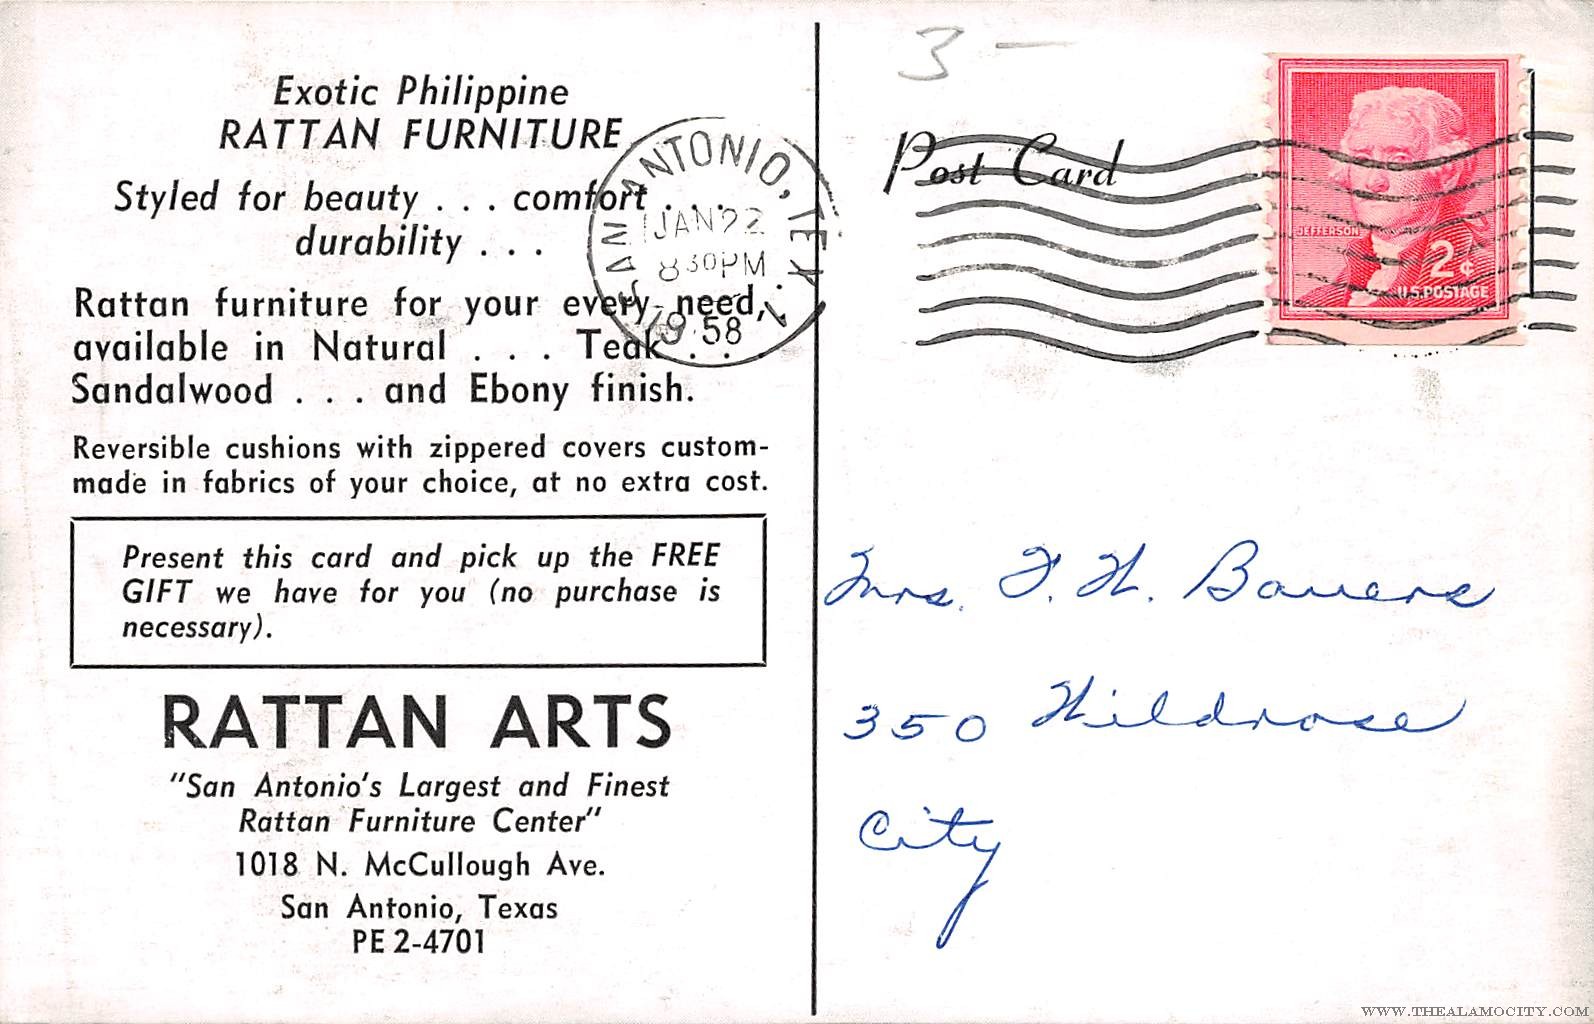 Exotic Philippine
RATTAN FURNITURE
Styled for beauty . . . comfort . . .
durability . . .
Rattan furniture for your every need,
available in Natural . . . Teak . .
Sandalwood . . . and Ebony finish.
Reversible cushions with zippered covers custom-
made in fabrics of your choice, at no extra cost.
Present this card and pick up the FREE
GIFT we have for you (no purchase is
necessary).
RATTAN ARTS
"San Antonio's Largest and Finest
Rattan Furniture Center"
1018 N. McCullough Ave.
San Antonio, Texas
PE 2-4701
SAN ANTONIO, TEX.
JAN 22
8 30 PM
1958
3 —
Post Card
JEFFERSON
2¢
U.S. POSTAGE
Mrs. F. H. Bauers
350 Wildrose
City
WWW.THEALAMOCITY.COM